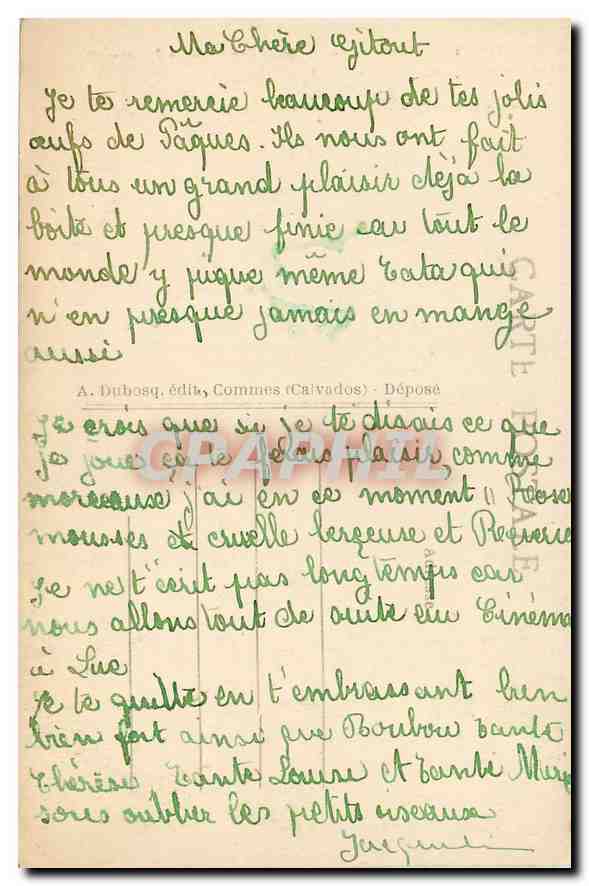 Ma Chère Gitout
Je te remercie beaucoup de tes jolis
œufs de Pâques. Ils nous ont fait
à tous un grand plaisir déjà la
boite et presque finie car tout le
monde y pique même Tata qui
n'en presque jamais en mange
aussi
A. Dubosq, édit., Commes (Calvados) - Déposé
Je crois que si je te disais ce que
je joue ça te ferais plaisir, comme
morceaux j'ai en ce moment " Rose
mousses et cruelle berçeuse et Reverie
Je ne t'écrit pas longtemps car
nous allons tout de suite au Cinéma
à Luc
Je te quitte en t'embrassant bien
bien fort ainsi que Boubou tante
Thérèse, Tante Louise et tante Marie
sans oublier les petits oiseaux
CARTE POSTALE
CPAPHIL